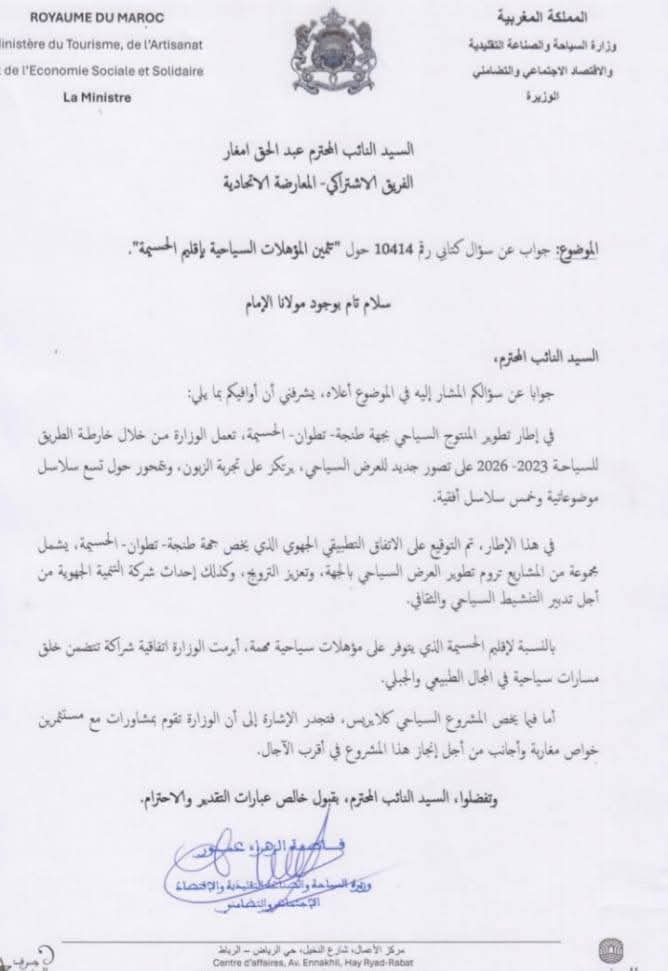 ROYAUME DU MAROC
المملكة المغربية
inistère du Tourisme, de l'Artisanat
وزارة السياحة والصناعة التقليدية
de l'Economie Sociale et Solidaire
والاقتصاد الاجتماعي والتضامني
La Ministre
الوزيرة
السيد النائب المحترم عبد الحق امغار
الفريق الاشتراكي- المعارضة الاتحادية
الموضوع: جواب عن سؤال كتابي رقم 10414 حول "تثمين المؤهلات السياحية بإقليم الحسيمة".
سلام تام بوجود مولانا الإمام
السيد النائب المحترم،
جوابا عن سؤالكم المشار إليه في الموضوع أعلاه، يشرفني أن أوافيكم بما يلي:
في إطار تطوير المنتوج السياحي بجهة طنجة- تطوان- الحسيمة، تعمل الوزارة من خلال خارطة الطريق
للسياحة 2023- 2026 على تصور جديد للعرض السياحي، يرتكز على تجربة الزبون، ويتمحور حول تسع سلاسل
موضوعاتية وخمس سلاسل أفقية.
في هذا الإطار، تم التوقيع على الاتفاق التطبيقي الجهوي الذي يخص جهة طنجة- تطوان- الحسيمة، يشمل
مجموعة من المشاريع تروم تطوير العرض السياحي بالجهة، وتعزيز الترويج، وكذلك إحداث شركة التنمية الجهوية من
أجل تدبير التنشيط السياحي والثقافي.
بالنسبة لإقليم الحسيمة الذي يتوفر على مؤهلات سياحية مهمة، أبرمت الوزارة اتفاقية شراكة تتضمن خلق
مسارات سياحية في المجال الطبيعي والجبلي.
أما فيما يخص المشروع السياحي كلايريس، فتجدر الإشارة إلى أن الوزارة تقوم بمشاورات مع مستثمرين
خواص مغاربة وأجانب من أجل إنجاز هذا المشروع في أقرب الآجال.
وتفضلوا، السيد النائب المحترم، بقبول خالص عبارات التقدير والاحترام.
فاطمة الزهراء عمور
وزيرة السياحة والصناعة التقليدية والاقتصاد
الاجتماعي والتضامني
مركز الأعمال، شارع النخيل، حي الرياض – الرباط
Centre d'affaires, Av. Ennakhil, Hay Ryad-Rabat